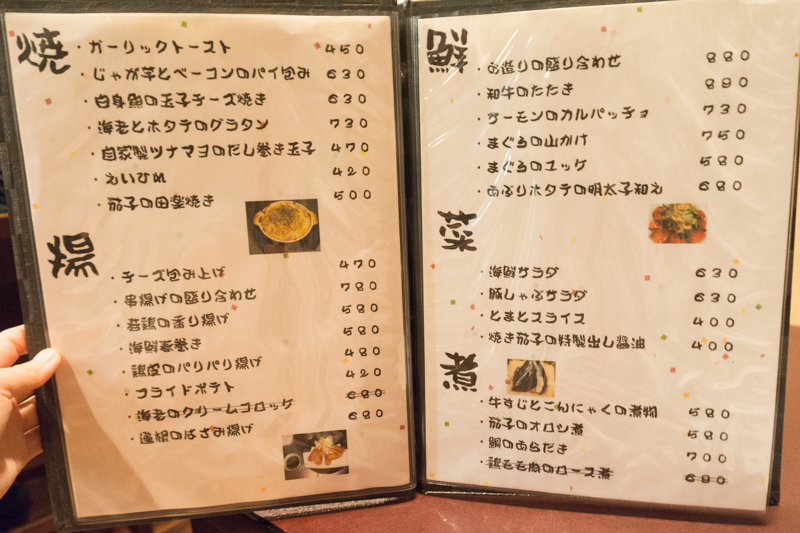 焼
・ガーリックトースト 450
・じゃが芋とベーコンのパイ包み 630
・白身魚の玉子チーズ焼き 630
・海老とホタテのグラタン 730
・自家製ツナマヨのだし巻き玉子 470
・えいひれ 420
・茄子の田楽焼き 500
揚
・チーズ包み上げ 470
・串揚げの盛り合わせ 780
・若鶏の香り揚げ 580
・海鮮春巻き 580
・鶏皮のパリパリ揚げ 480
・フライドポテト 420
・海老のクリームコロッケ 680
・蓮根のはさみ揚げ 680
鮮
・お造りの盛り合わせ 880
・和牛のたたき 890
・サーモンのカルパッチョ 730
・まぐろの山かけ 750
・まぐろのユッケ 580
・あぶりホタテの明太子和え 680
菜
・海鮮サラダ 630
・豚しゃぶサラダ 630
・とまとスライス 400
・焼き茄子の特製出し醤油 400
煮
・牛すじとこんにゃくの煮物 580
・茄子のオロシ煮 580
・鯛のあらだき 700
・鶏もも肉のロース煮 680